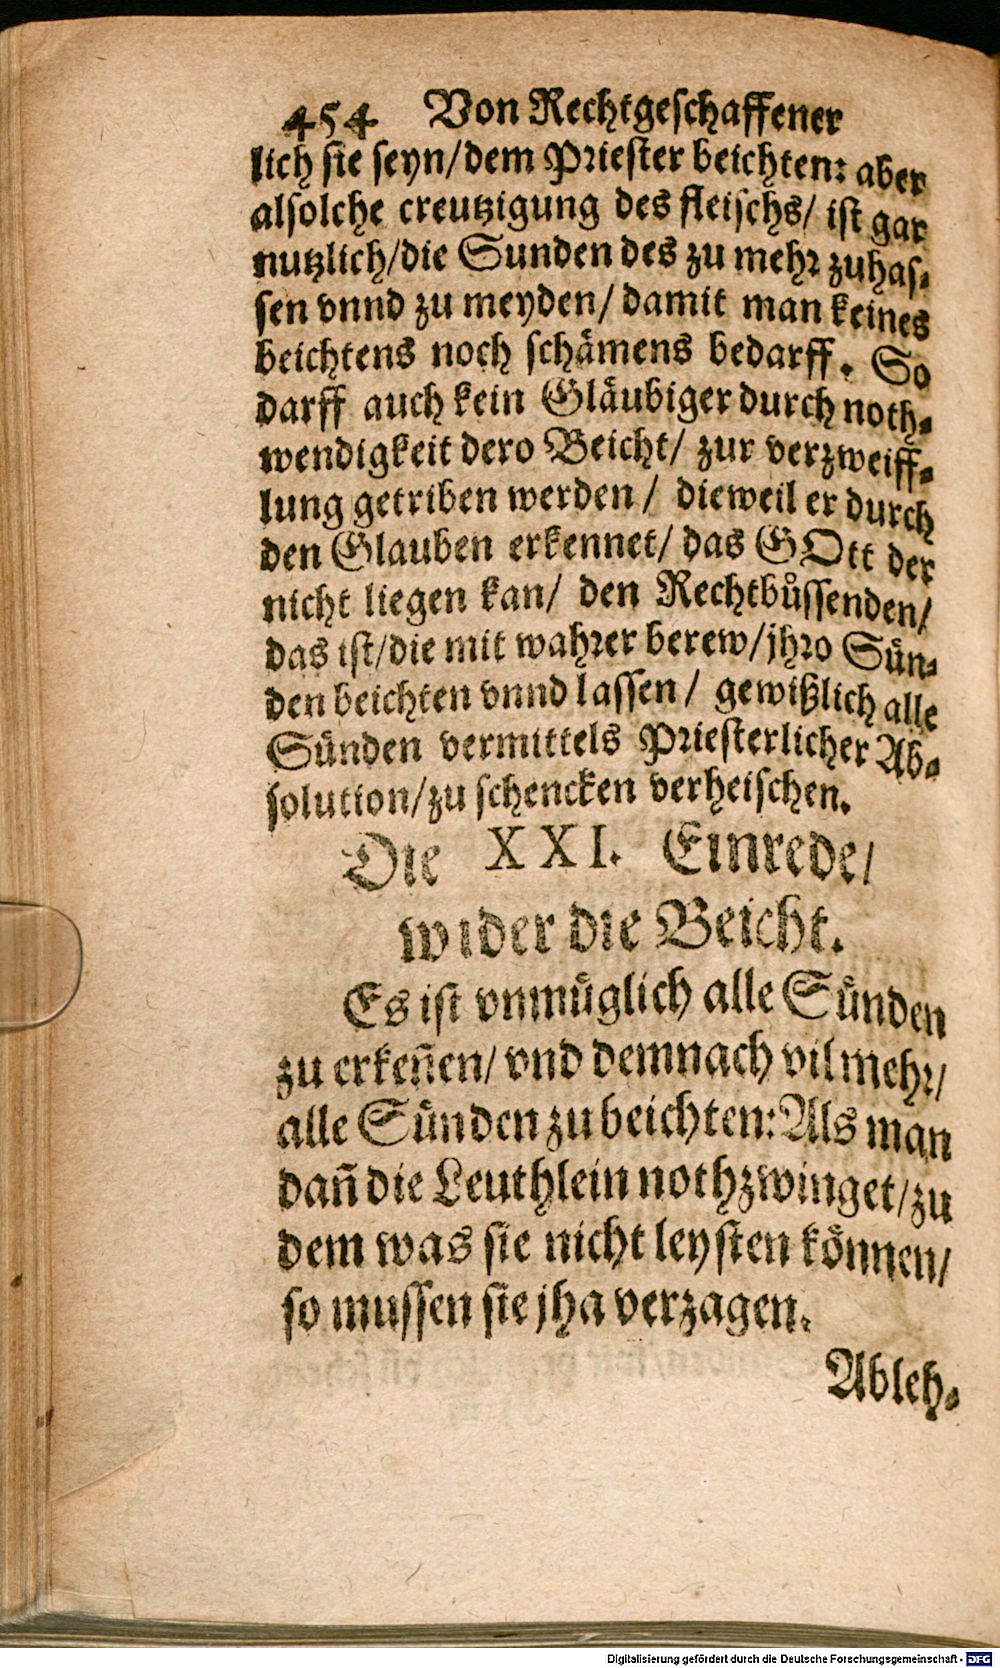 454 Von Rechtgeschaffener
lich sie seyn/dem Priester beichten: aber
alsolche creutzigung des fleischs/ ist gar
nutzlich/die Sunden des zu mehr zuhas-
sen vnnd zu meyden/ damit man keines
beichtens noch schämens bedarff. So
darff auch kein Gläubiger durch noth-
wendigkeit dero Beicht/ zur verzweiff-
lung getriben werden/ dieweil er durch
den Glauben erkennet/ das GOtt der
nicht liegen kan/ den Rechtbüssenden/
das ist/die mit wahrer berew/jhro Sün-
den beichten vnnd lassen/ gewißlich alle
Sünden vermittels Priesterlicher Ab-
solution/zu schencken verheischen.
Die XXI. Einrede/
wider die Beicht.
Es ist vnmüglich alle Sünden
zu erkeñen/ vnd demnach vil mehr/
alle Sünden zu beichten: Als man
dañ die Leuthlein nothzwinget/zu
dem was sie nicht leysten können/
so mussen sie jha verzagen.
Ableh-
Digitalisierung gefördert durch die Deutsche Forschungsgemeinschaft - DFG